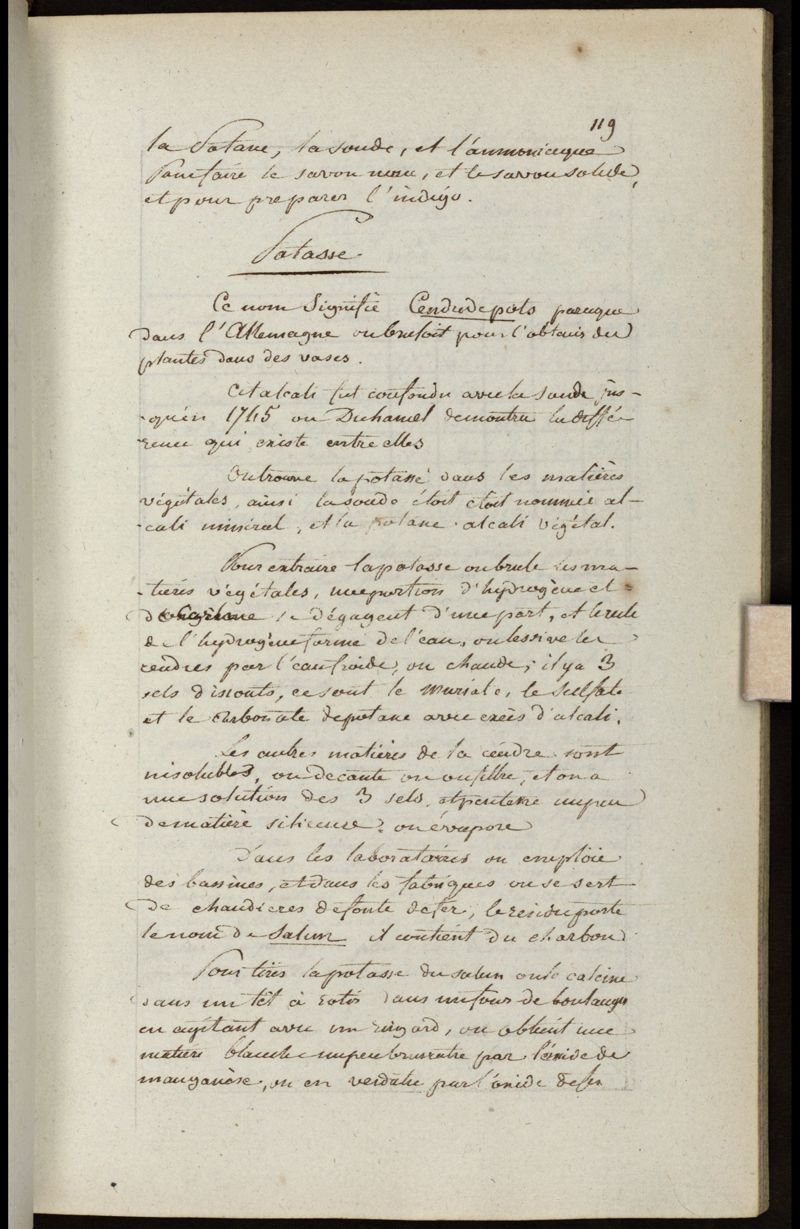 119
la Potasse, la soude, et l'ammoniaque
Pour faire le savon mou, et le savon solide,
et pour preparer l'indigo.
Potasse
Ce nom Signifie Cendredepots parceque
dans l'Allemagne on bruloit pour l'obtenir des
plantes dans des vases.
Cet alcali fut confondu avec la soude jus-
-qu'en 1745 ou Duhamel demontra la diffé-
rence qui existe entre elles
On trouve la potasse dans les matières
végétales, ainsi la soude étoit étoit nommée al-
-cali minéral, et la potasse alcali végétal.
Pour extraire la potasse on brule les ma-
-tières végétales, une portion d'hydrogène et
de se dégagent d'une part, et le reste
de l'hydrogène forme de l'eau, on lessive les
cendres par l'eau froide, ou chaude; il y a 3
sels dissouts, ce sont le Muriate, le Sulfate
et le carbonate de potasse avec excès d'alcali.
Les autres matières de la cendre sont
insolubles, on decante on on filtre, et on a
une solution des 3 sels, et peut etre un peu
de matière silicieuse; on évapore
Dans les laboratoires on emploie
des bassines, et dans les fabriques on se sert
de chaudieres de fonte de fer, le residu porte
le nom de Salin il contient du charbon
Pour tirer la potasse du salin on le calcine
dans un têt à rotir dans un four de boulanger
en agitant avec un ringard, on obtient une
matière blanche un peu brunatre par l'oxide de
manganèse, ou en verdatre par l'oxide de fer